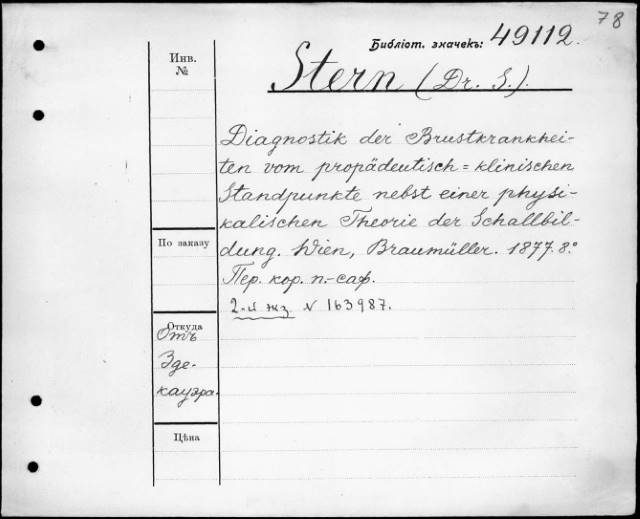 78
Библіот. значекъ: 49112.
Инв.
№
Stern (Dr. S.).
Diagnostik der Brustkrankhei-
ten vom propädeutisch=klinischen
Standpunkte nebst einer physi-
kalischen Theorie der Schallbil-
По заказу
dung. Wien, Braumüller. 1877. 8.°
Пер. кор. п.-саф.
2-й экз. N 163987.
Откуда
Отъ
Зде-
кауэра.
Цѣна